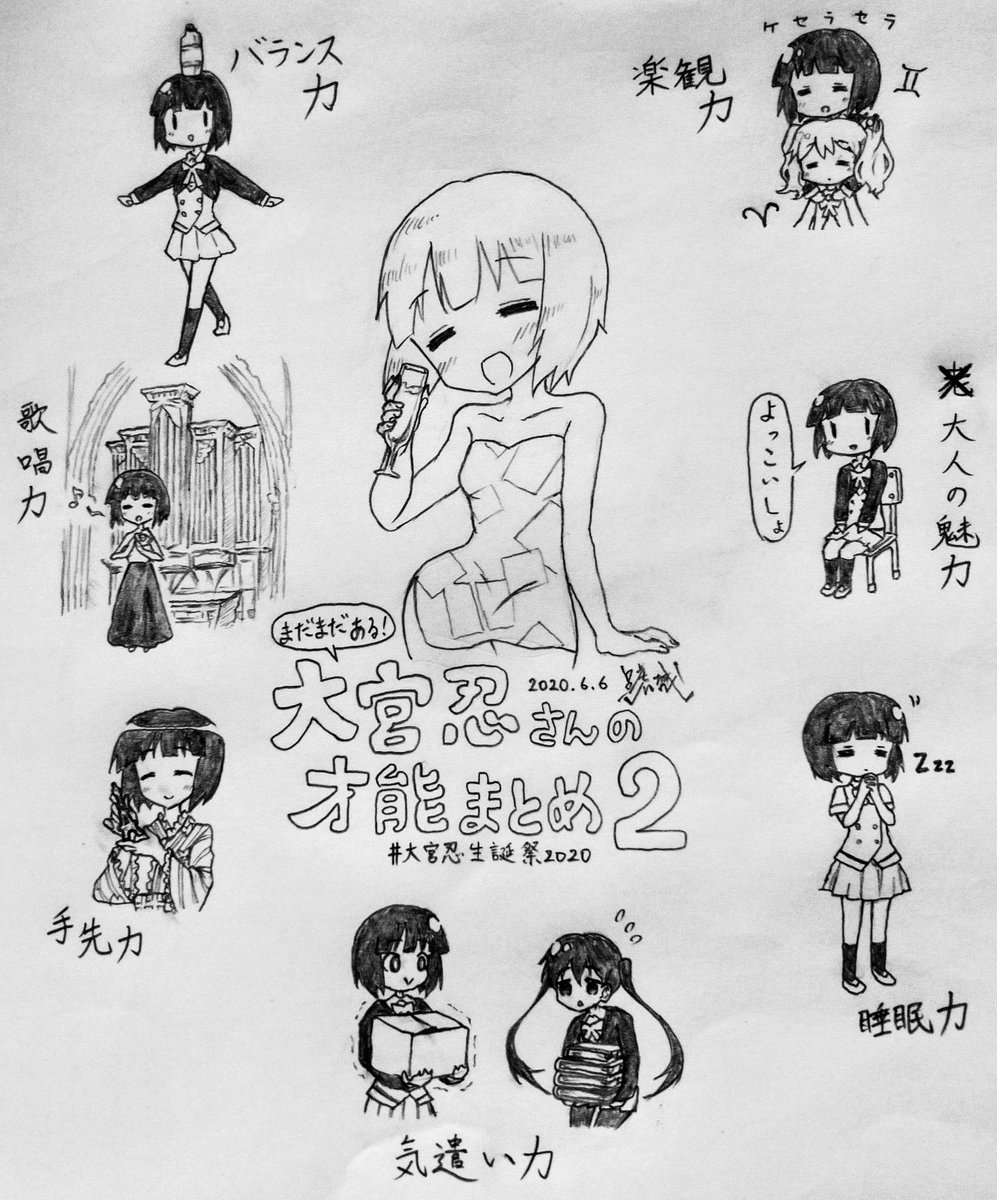 バランス
力
ケセラセラ
楽観
力
♊
♈
歌唱力
よっこいしょ
大人の魅力
まだまだある!
2020.6.6
大宮忍さんの
才能まとめ2
#大宮忍生誕祭2020
Zzz
手先力
睡眠力
気遣い力